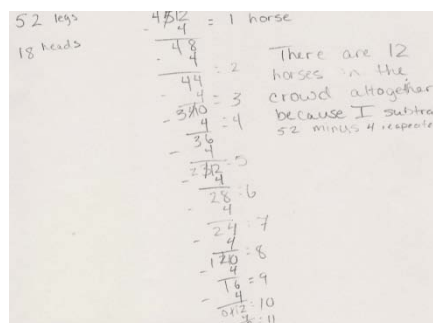 52 legs
18 heads
4512 = 1 horse
- 4
48
- 4
44 = 2
- 4
40 = 3
- 4 = 4
36
- 4
32 = 5
- 4
28 = 6
- 4
24 = 7
- 4
20 = 8
- 4
16 = 9
- 4
12 = 10
= 11
There are 12
horses in the
crowd altogether
because I subtra
52 minus 4 repeate